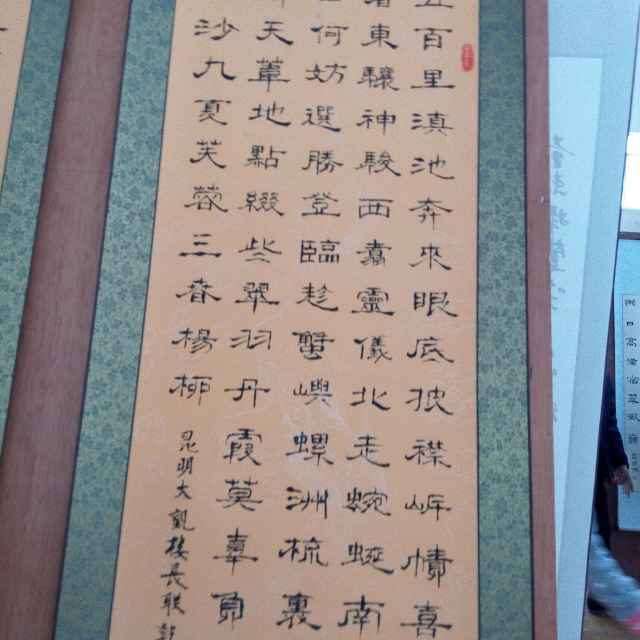 五百里滇池奔來眼底披襟岸幘喜
看東驤神駿西翥靈儀北走蜿蜒南
何妨選勝登臨趁蟹嶼螺洲梳裹
天葦地點綴些翠羽丹霞莫辜負
沙九夏芙蓉三春楊柳
昆明大觀樓長联